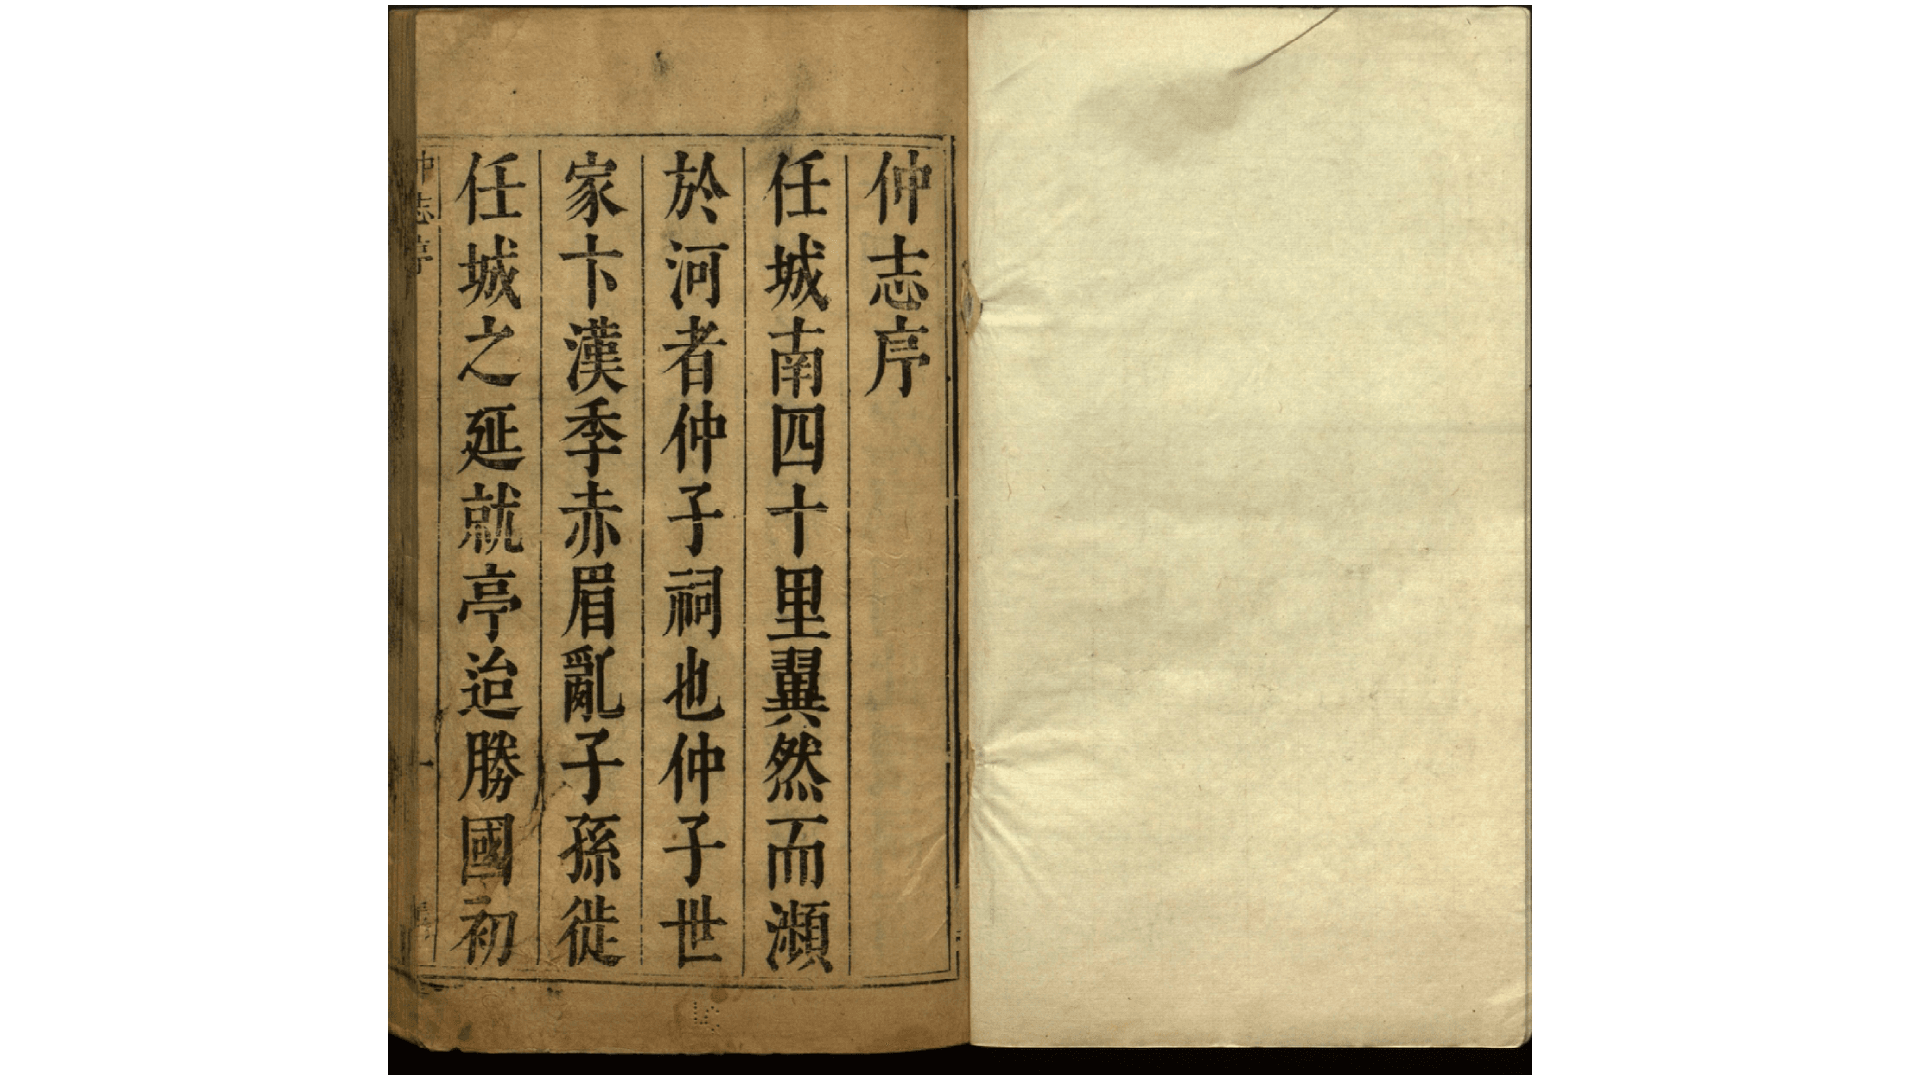 仲志序
任城南四十里翼然而瀕
於河者仲子祠也仲子世
家卞漢季赤眉亂子孫徙
任城之延就亭迨勝國初
仲志序
一